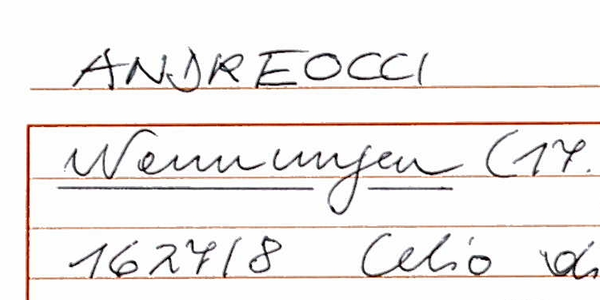 ANDREOCCI
Nennungen (17.
1627/8 Celio di